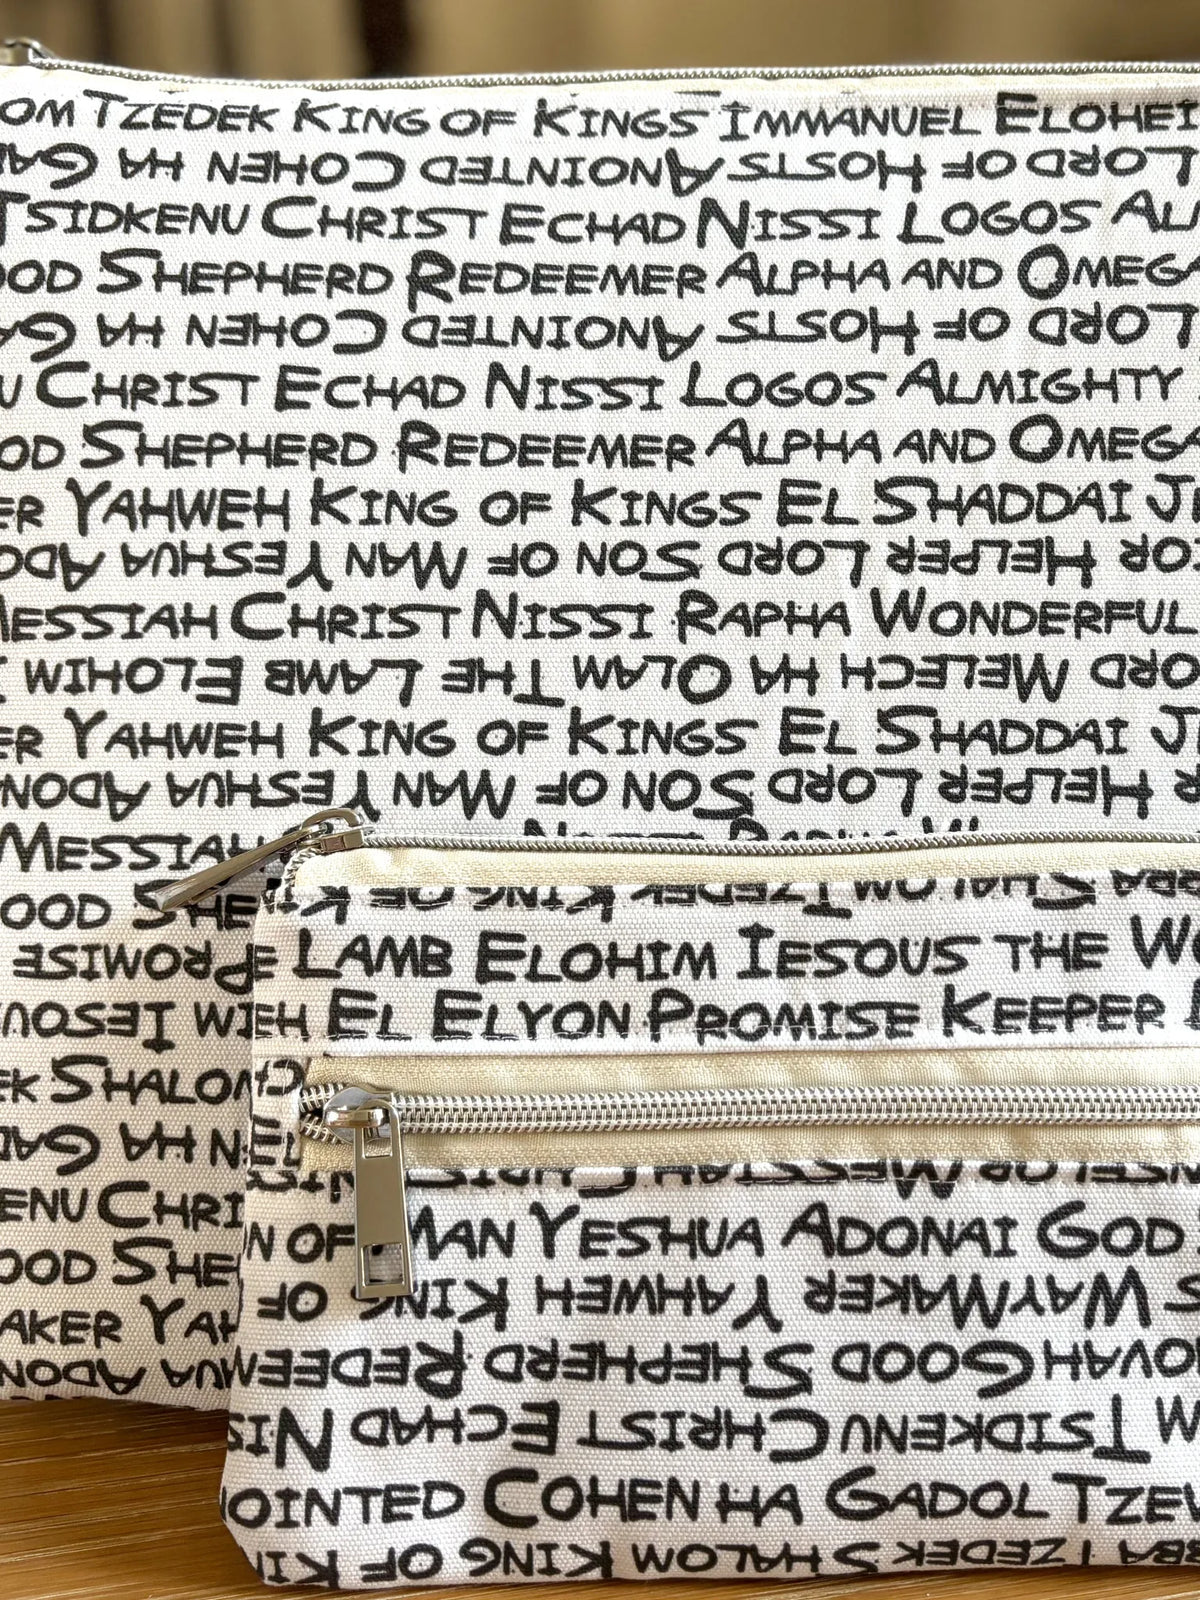 TZEDEK KING OF KINGS IMMANUEL
LORD OF HOSTS ANOINTED COHEN HA
TSIDKENU CHRIST ECHAD NISSI LOGOS
SHEPHERD REDEEMER ALPHA AND OMEGA
LORD OF HOSTS ANOINTED COHEN HA
CHRIST ECHAD NISSI LOGOS ALMIGHTY
SHEPHERD REDEEMER ALPHA AND OMEGA
YAHWEH KING OF KINGS EL SHADDAI
HELPER LORD SON OF MAN YESHUA
MESSIAH CHRIST NISSI RAPHA WONDERFUL
MELECH HA OLAM THE LAMB ELOHIM
YAHWEH KING OF KINGS EL SHADDAI
HELPER LORD SON OF MAN YESHUA
MESSIAH
PROMISE
SHALOM
HA
SHALOM TZEDEK KING OF
LAMB ELOHIM IESOUS THE
EL ELYON PROMISE KEEPER
MESSIAH CHRIST
OF MAN YESHUA ADONAI GOD
WAYMAKER YAHWEH KING OF
GOOD SHEPHERD
TSIDKENU CHRIST ECHAD
COHEN HA GADOL
TZEDEK SHALOM KING OF